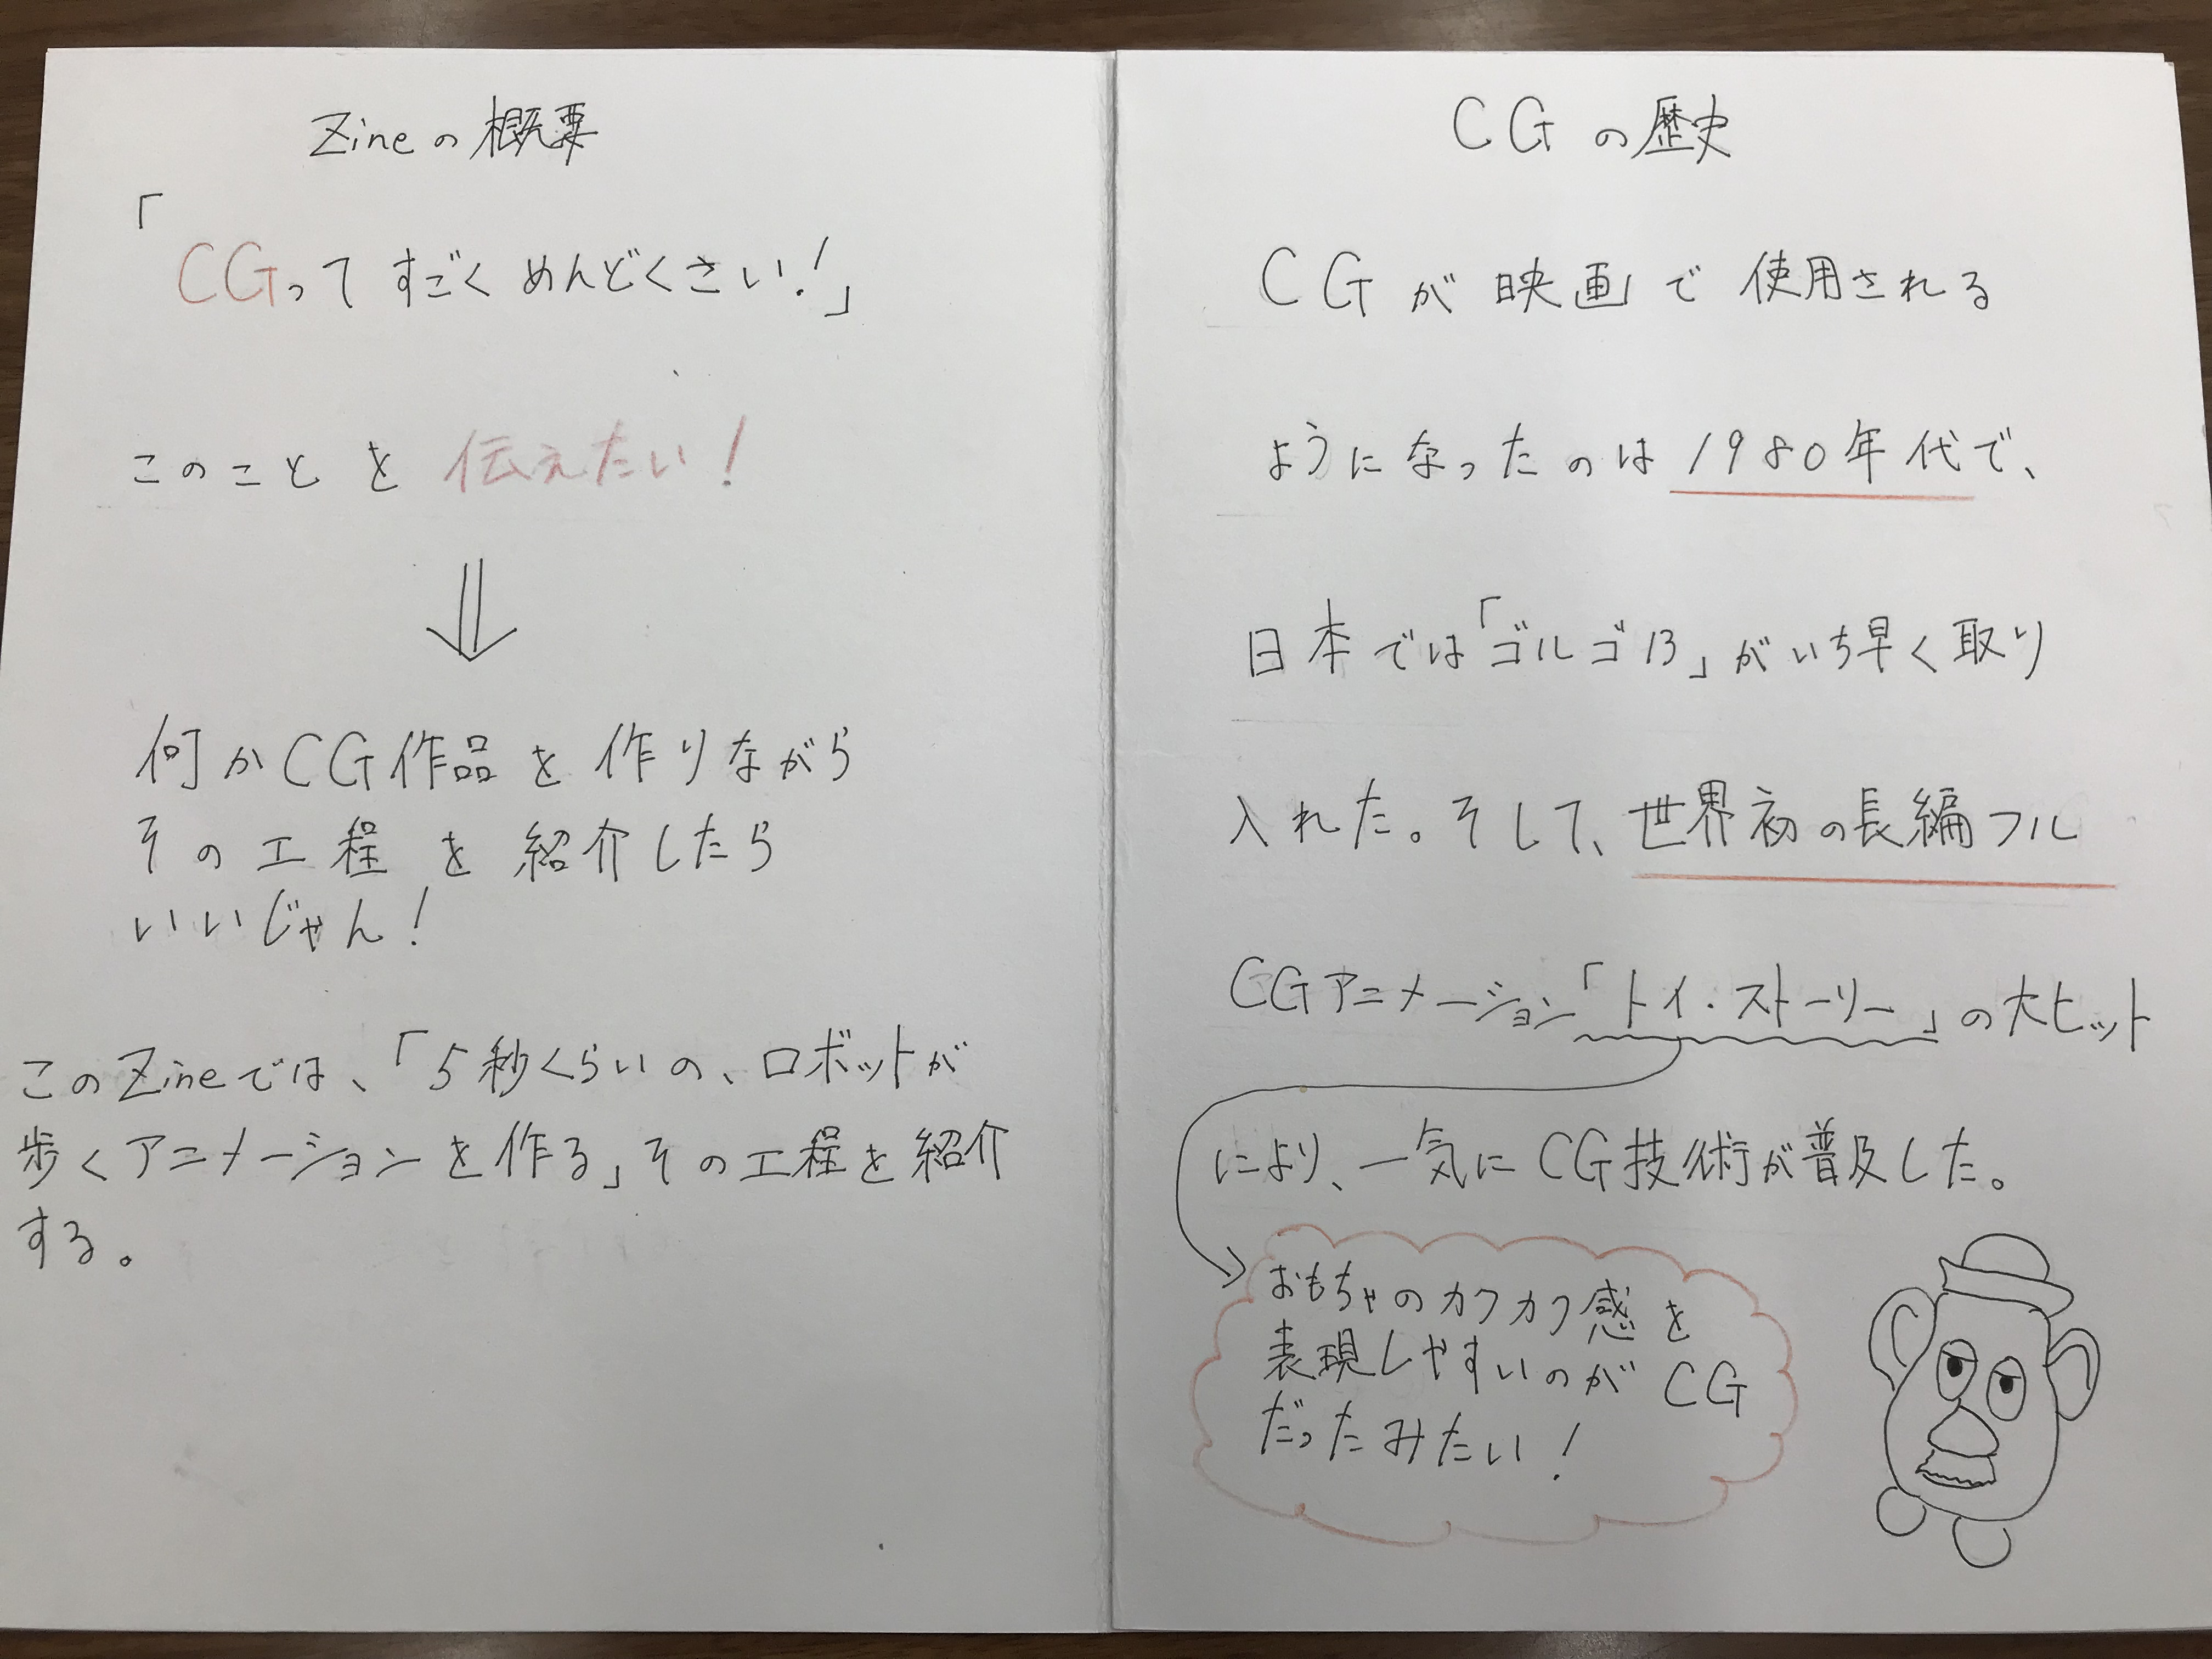 Zineの概要
「CGってすごくめんどくさい!」
このことを伝えたい!
何かCG作品を作りながら
その工程を紹介したら
いいじゃん!
このZineでは、「5秒くらいの、ロボットが
歩くアニメーションを作る」その工程を紹介
する。
CGの歴史
CGが映画で使用される
ようになったのは1980年代で、
日本では「ゴルゴ13」がいち早く取り
入れた。そして、世界初の長編フル
CGアニメーション「トイ・ストーリー」の大ヒット
により、一気にCG技術が普及した。
おもちゃのカクカク感を
表現しやすいのがCG
だったみたい!